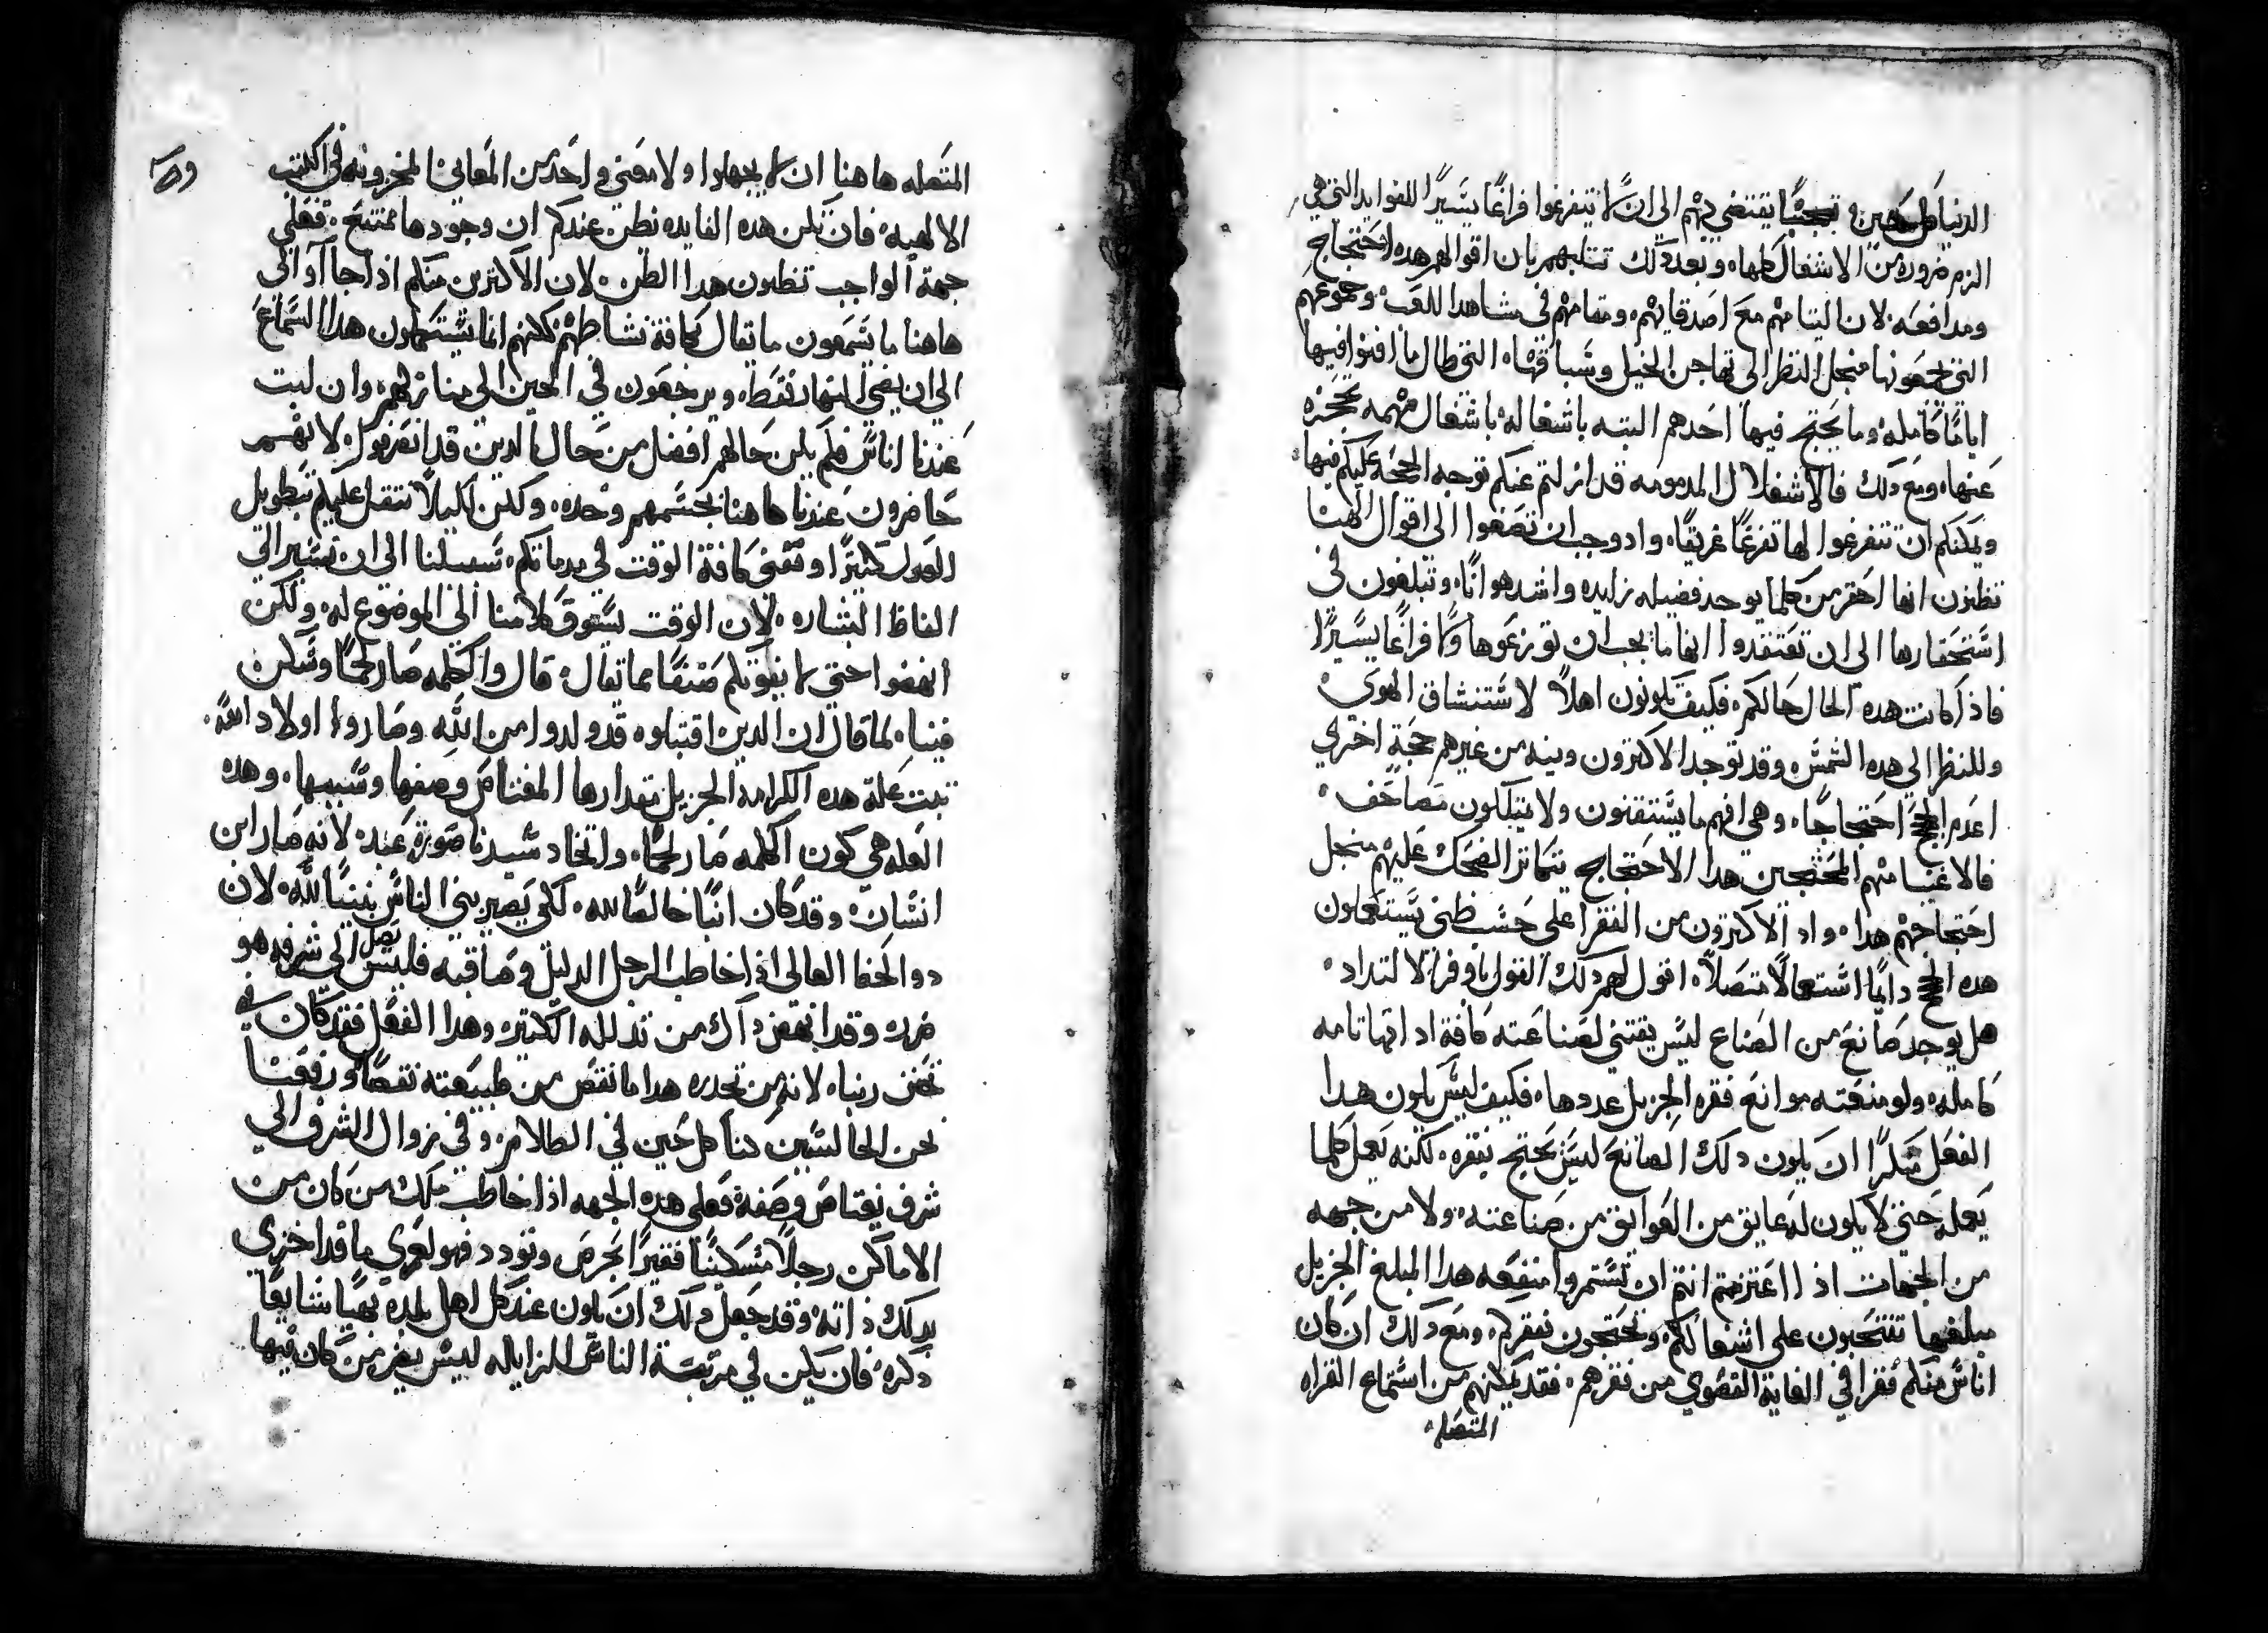 الدنيا كل حين يقتضي بهم الى ان لا يتفرغوا فراغًا يسَيرًا للفوايد التي هي
الزم ضروره من الاشغال كلها، وبعد دلك تتلبهم بان اقوالهم هده احتجاج
ومدافعه لان التيامهم مع اصَدقايهم، ومقامهم في مشاهدا للعب وجموعهم
التي يجمعونها منجل النظر الى تهاجن الخيل وسَباقها، التي طال ما افنوا فيها
ايامًا كامله وما يحتج فيها احَدهم البته باشغاله باشغال مهمه تحجزه
عَنها، ومع دلك فالاشغلال المدمومه قد ازلتم عنكم توجه الحجه عليكم فيها
ويمكنكم ان تتفرغوا لها تفرغًا غريقًا، واد وجب ان تصَغوا الى اقوال الهنا
تظنون انها احقر من كلما يوجد فضيله زايده واشد هوانًا، وتبلغون في
استَحَقارها الى ان تعَتقدوا انها ما يجب ان توزعوها ولا فراغًا يسَيرًا
فاذ كانت هده الحال حالكم، فكيف تكونون اهلاً لاستَنشاق الهوى
وللنظر الى هده الشمسَ، وقد توجد الاكترون وينيه من غيرهم حجة اخري
اعَدم الحجج احتجاجًا، وهي انهم ما يسَتقنون ولا يتبلكون مصَاحَف
فالاغنيا منهم المحَتجين هدا الاحَتجاج يتماتر الضحك عَليْهم منجل
احتجاجهم هدا، واد الاكترون من الفقرا على حسَب ظني يسَتعملون
هده الحجج دايمًا استَعمالاً متصَلاً، اقول لهم دلك القول باوفر الالتداد
هل يوجد صَانع من الصَناع ليسَ يقتني لصَناعته كافة اداتها تامه
كامله، ولو منعَته موانع فقره الجزيل عددها، فكيف ليسَ يكون هدا
الفعل منكرًا ان يكون دلك الصانع ليسَ يحَتج بفقره، لكنه يعمل كلما
يعمله حَتي لا يكون له عَايق من العَوايق من صناعته، ولا من جهه
من الجهات اذ ااعتزمتم انتم ان تستمروا منفعه هدا المبلغ الجزيل
مبلغها تنتحَبون على اشغالكم وتحَتجون بفقركم، ومَع دلك ان كان
اناسَ منكم فقرا في الغاية القصَوي من فقرهم، فقد يمكنهم من استماع القراه
المتصَله
المتصَله هاهنا ان لا يجهلوا ولا معَني واحَد من المَعاني المخزونه في الكتب
الالهيه، فان تكن هده الفايده نظن عندكم ان وجودها ممتنع، فعَلي
جهة الواجب تظنون هدا الظن، لان الاكترين منكم اذا جاآوا الى
هاهنا ما يسَمَعون ما يقال بكافة نشاطهم، لكنهم انما يستكملون هدا السَماع
الى ان يضي النهار فقط، ويرجعَون في الحين الى منازلهم، وان لبت
عَندنا اناسَ فلم يكن حَالهم افضل من حَال الدين قد انعَزلوا، لانهم
حَاضرون عَندنا هاهنا بجسَمهم وحْده، وكلن لكيلا نتقل عليكم بتطويل
العدل كتيرًا ونفني كافة الوقت في مدماتكم، سَبيلنا الى ان نشير الى
الفاظ البشاره، لان الوقت يسَوق كلامنا الى الموضوع له، ولكن
انهضوا حتي لا يفوتكم صَنفًا مما يقال، قال والكلمه صَار لحمًا وسَكن
فينا، لما قال ان الدين اقتبلوه قد ولدوا من الله وصَاروا اولاد الله
تبت عَلة هده الكرامه الجزيل مقدارها المعتاص وصفها وسَببها، وهده
العَله هي كون الكلمه صَار لحمًا، واتخاد سَيدنا صَورة عَبد، لانه صَار ابن
انسَان، وقد كان ابنًا خالصًا لله، لكي يصَير بني الناسَ بنينًا لله، لان
دو الخفا العالى اذا خاطب الرجل الدليل وصَاقبه فليسَ يصل الى شرفه هو
ضرره وقد انهض داك من تدلله الكتيره وهدا الفعَل فقد كان في
تخنن ربنا، لانه من تحدره هدا ما نقصَ من طبيعَته نقصًا، ورفعَنا
نحن الجالسَين هنا كل حَين في الظلام، وفي زوال الشرف الي
شرف يعتاص وصَفه فعلى هده الجهه اذا خاطب ملك من كان من
الاماكن رجلاً مسَكينًا فقيرًا بحرصَ وتودد فهو لعَمري ما قد اخزي
بدلك ذاته، وقد جعَل دلك ان يكون عندكل اهل بلده بهيًا شايعًا
دكره، فان يكن في مرتبة الناسَ المزاياله ليسَ يضر من كان فيها